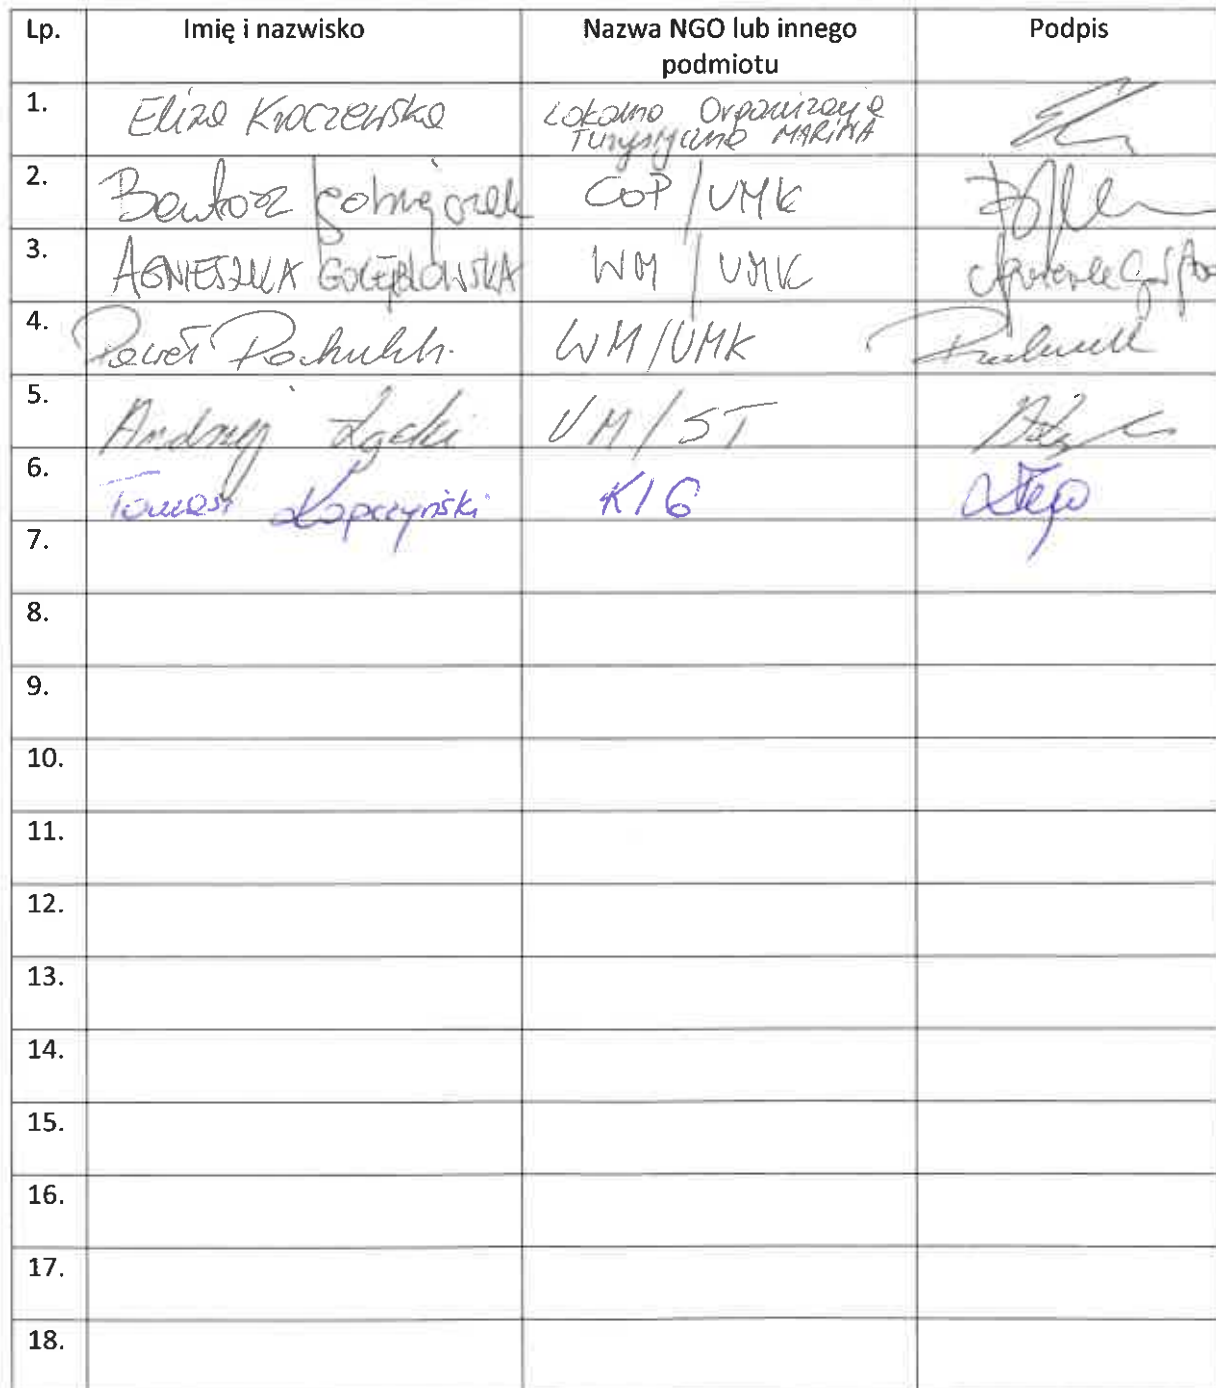 Lp. Imię i nazwisko Nazwa NGO lub innego Podpis
podmiotu
1. Eliza Kroczewska Lokalna Organizacja
Turystyczna MARINA
2. Bartosz COP / UMK
3. AGNIESZKA GOŁĘBIOWSKA WM / UMK
4. Paweł WM / UMK
5. Andrzej Łącki UM / ST
6. Tomasz Łopaczyński KIG
7.
8.
9.
10.
11.
12.
13.
14.
15.
16.
17.
18.